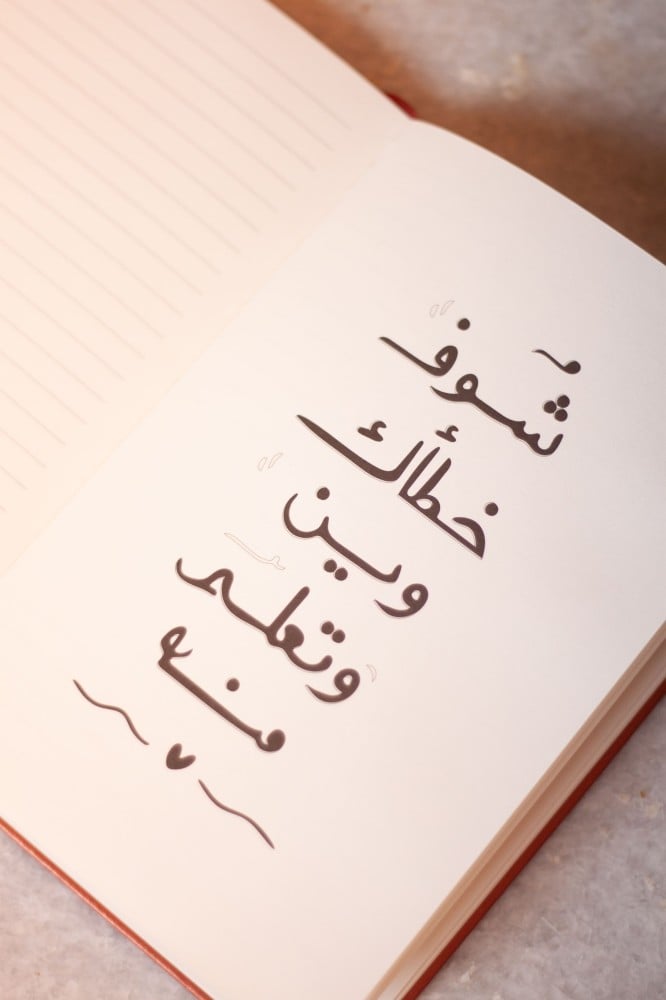 شُوف
خطأك
وين
وتعلم
منه